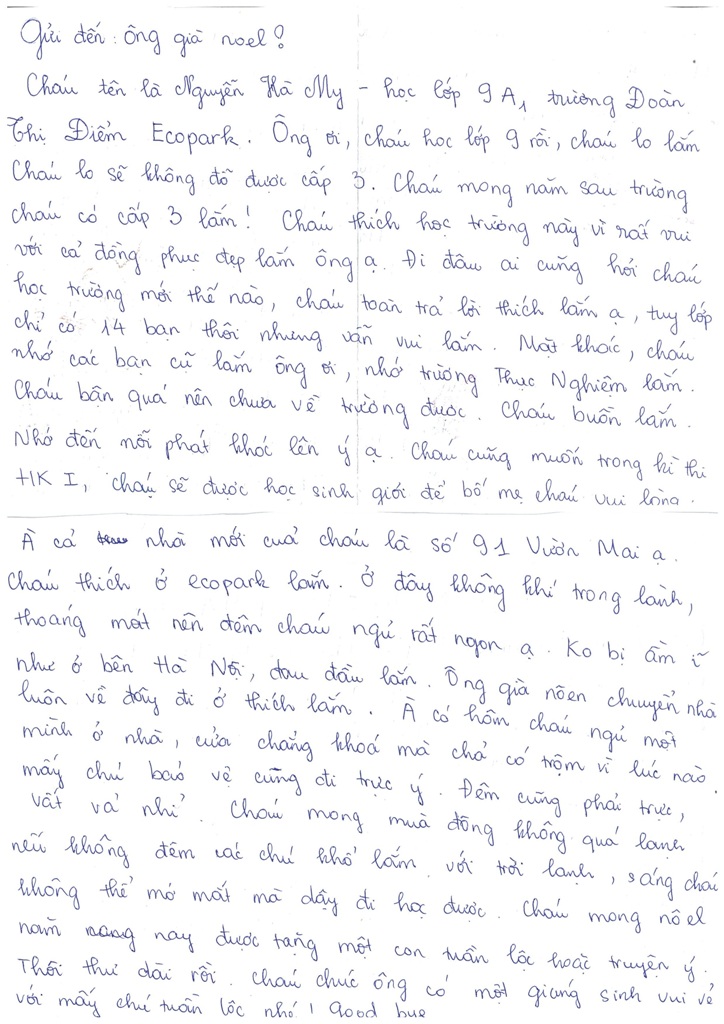 Gửi đến: ông già noel!
Cháu tên là Nguyễn Hà My - học lớp 9A1, trường Đoàn
Thị Điểm Ecopark. Ông ơi, cháu học lớp 9 rồi, cháu lo lắm
Cháu lo sẽ không đỗ được cấp 3. Cháu mong năm sau trường
cháu có cấp 3 lắm! Cháu thích học trường này vì rất vui
với cả đồng phục đẹp lắm ông ạ. Đi đâu ai cũng hỏi cháu
học trường mới thế nào, cháu toàn trả lời thích lắm ạ, tuy lớp
chỉ có 14 bạn thôi nhưng vẫn vui lắm. Mặt khác, cháu
nhớ các bạn cũ lắm ông ơi, nhớ trường Thực Nghiệm lắm.
Cháu bận quá nên chưa về trường được. Cháu buồn lắm.
Nhớ đến nỗi phát khóc lên ý ạ. Cháu cũng muốn trong kì thi
HK I, cháu sẽ được học sinh giỏi để bố mẹ cháu vui lòng.
À cả nhà mới cuả cháu là số 91 Vườn Mai ạ.
Cháu thích ở ecopark lắm. Ở đây không khí trong lành,
thoáng mát nên đêm cháu ngủ rất ngon ạ. Ko bị ầm ĩ
như ở bên Hà Nội, đau đầu lắm. Ông già nôen chuyển nhà
luôn về đây đi ở thích lắm. À có hôm cháu ngủ một
mình ở nhà, cửa chẳng khoá mà chả có trộm vì lúc nào
mấy chú baỏ vệ cũng đi trực ý. Đêm cũng phải trực,
vất vả nhỉ. Cháu mong muà đông không quá lạnh
nếu không đêm các chú khổ lắm với trời lạnh, sáng cháu
không thể mở mắt mà dậy đi học được. Cháu mong nôel
năm nay được tặng một con tuần lộc hoặc truyện ý.
Thôi thư dài rồi. Cháu chúc ông có một giáng sinh vui vẻ
với mấy chú tuần lộc nhé! Good bye